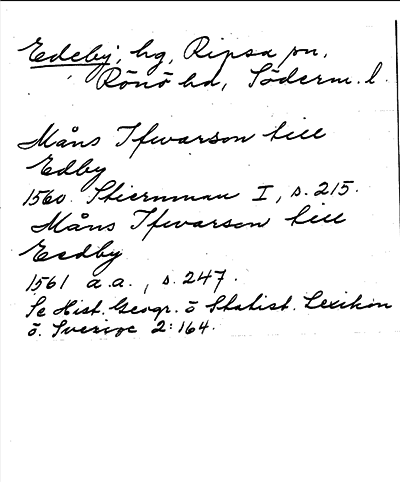 Edeby, hg, Ripsa sn,
Rönö hd, Söderm. l.
Måns Ifwarson till
Edby
1560. Stiernman I, s. 215.
Måns Ifwarson till
Eedby
1561 a.a., s. 247.
Se Hist. Geogr. o Statist. Lexikon
ö. Sverige 2:164.